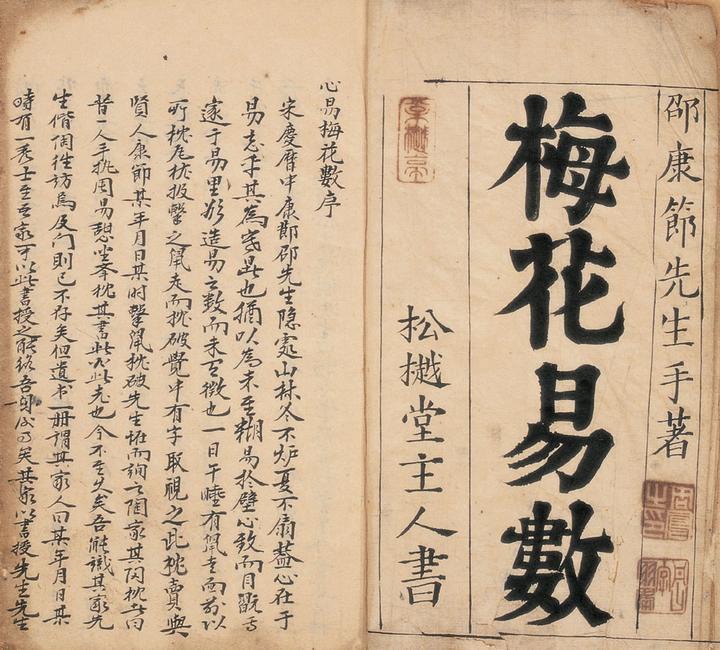 邵康節先生手著
梅花易數
松樾堂主人書
心易梅花數序
宋慶曆中康節邵先生隐處山林冬不炉夏不扇蓋心在于
易忘乎其為寒暑也猶以為未至糊易於壁心致而目翫焉
邃于易里欲造易之数而未有徵也一日午睡有鼠走而前以
所枕瓦枕投擊之鼠走而枕破覺中有字取視之此枕賣與
賢人康節某年月日某时擊鼠枕破先生怪而詢之陶家其陶枕者曰
昔一人手执周易憩坐举枕其書此必此老也今不至久矣吾能識其家先
生偕陶往訪焉及门則已不存矣但遺书一册謂其家人曰某年月日某
時有一秀士至吾家可以此書授之能終吾身矣其家以書授先生先生